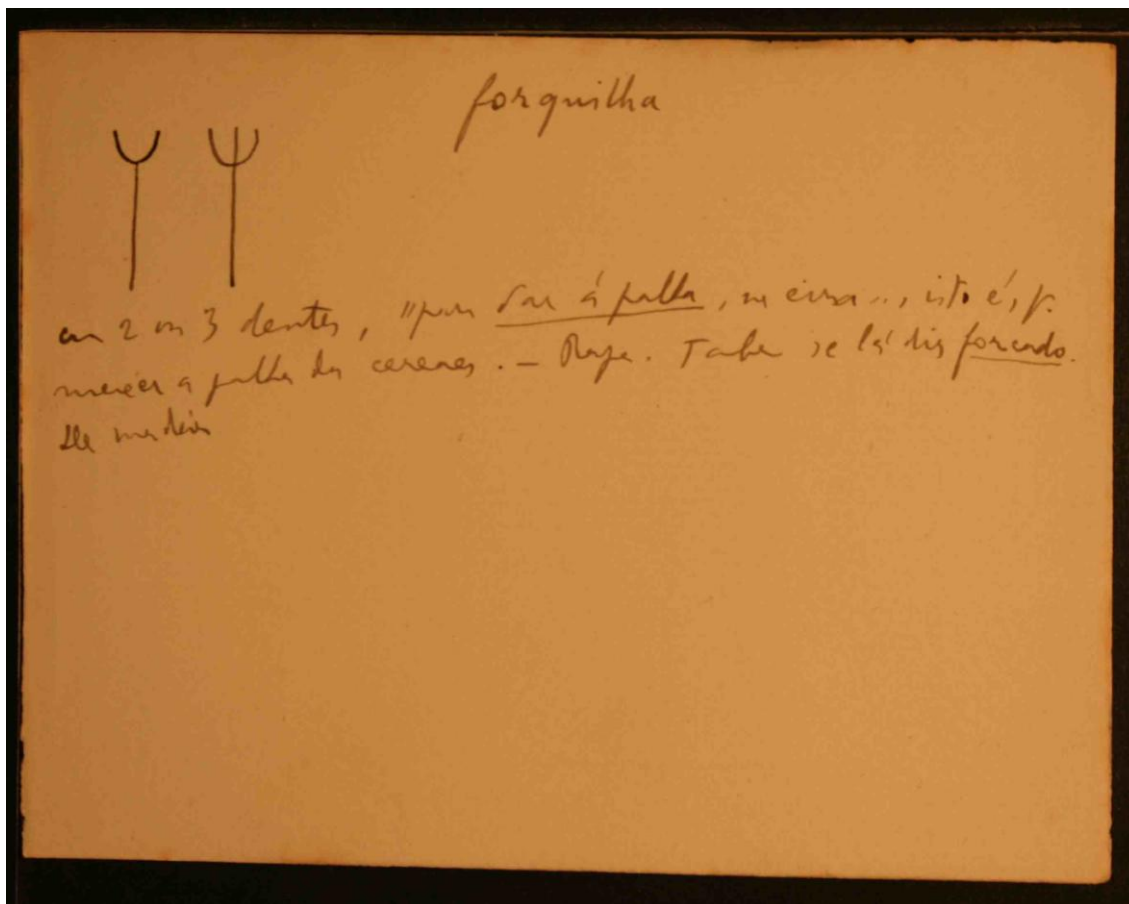 forquilha
com 2 ou 3 dentes, "para dar á palha, na eira", isto é, p.
mexer a palha dos cereaes. – . Tambem se lá diz forcado.
De madeira